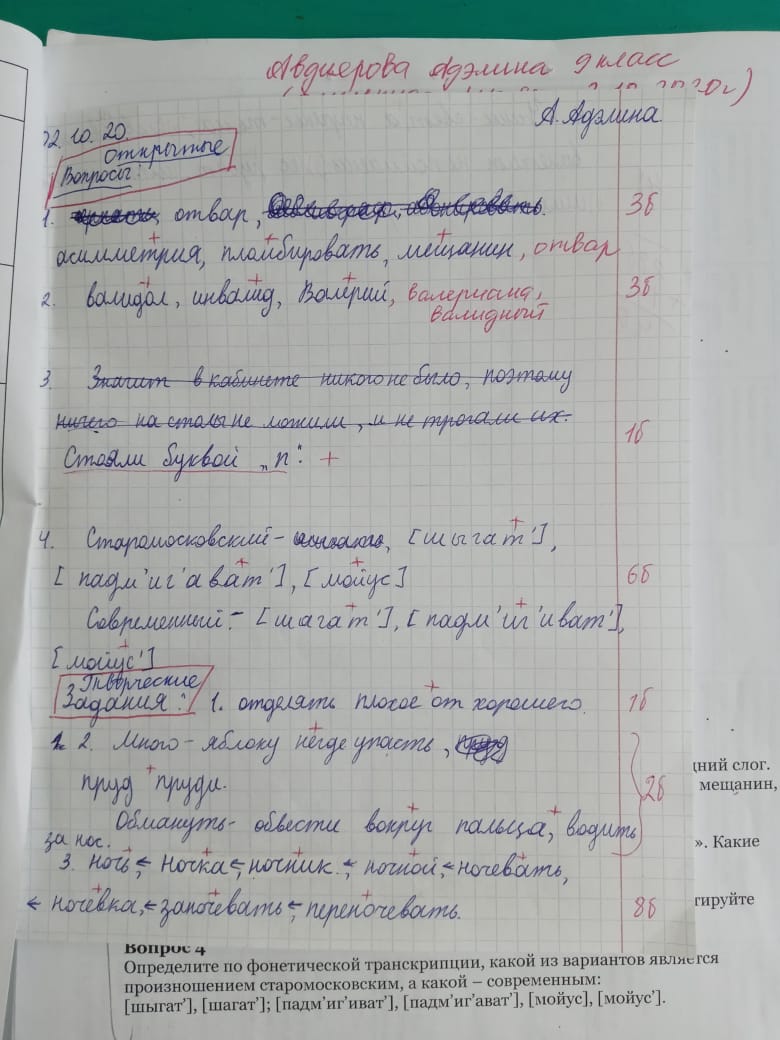 Авдиерова Адэлина 9 класс
02.10.20.
А. Адэлина.
Открытые
Вопросы:
1. отвар, 3б
асимметрия, пломбировать, мещанин, отвар
2. валидол, инвалид, Валерий, валериана, 3б
валидный
3. Значит в кабинете никого не было, поэтому
ничего на столы не ложили, и не трогали их.
1б
Стояли буквой „п". +
4. Старомосковский - , [шыгат'],
[падм'иг'ават'], [мойус] 6б
Современный - [шагат'], [падм'иг'иват'],
[мойус']
Творческие
Задания: 1. отделять плохое от хорошего. 1б
2. Много - яблоку негде упасть,
пруд пруди. 2б
Обмануть - обвести вокруг пальца, водить
за нос.
3. Ночь ← ночка ← ночник ← ночной ← ночевать,
← ночёвка ← заночевать ← переночевать. 8б
дний слог.
мещанин,
». Какие
тируйте
Вопрос 4
Определите по фонетической транскрипции, какой из вариантов является
произношением старомосковским, а какой – современным:
[шыгат'], [шагат']; [падм'иг'иват'], [падм'иг'ават'], [мойус], [мойус'].